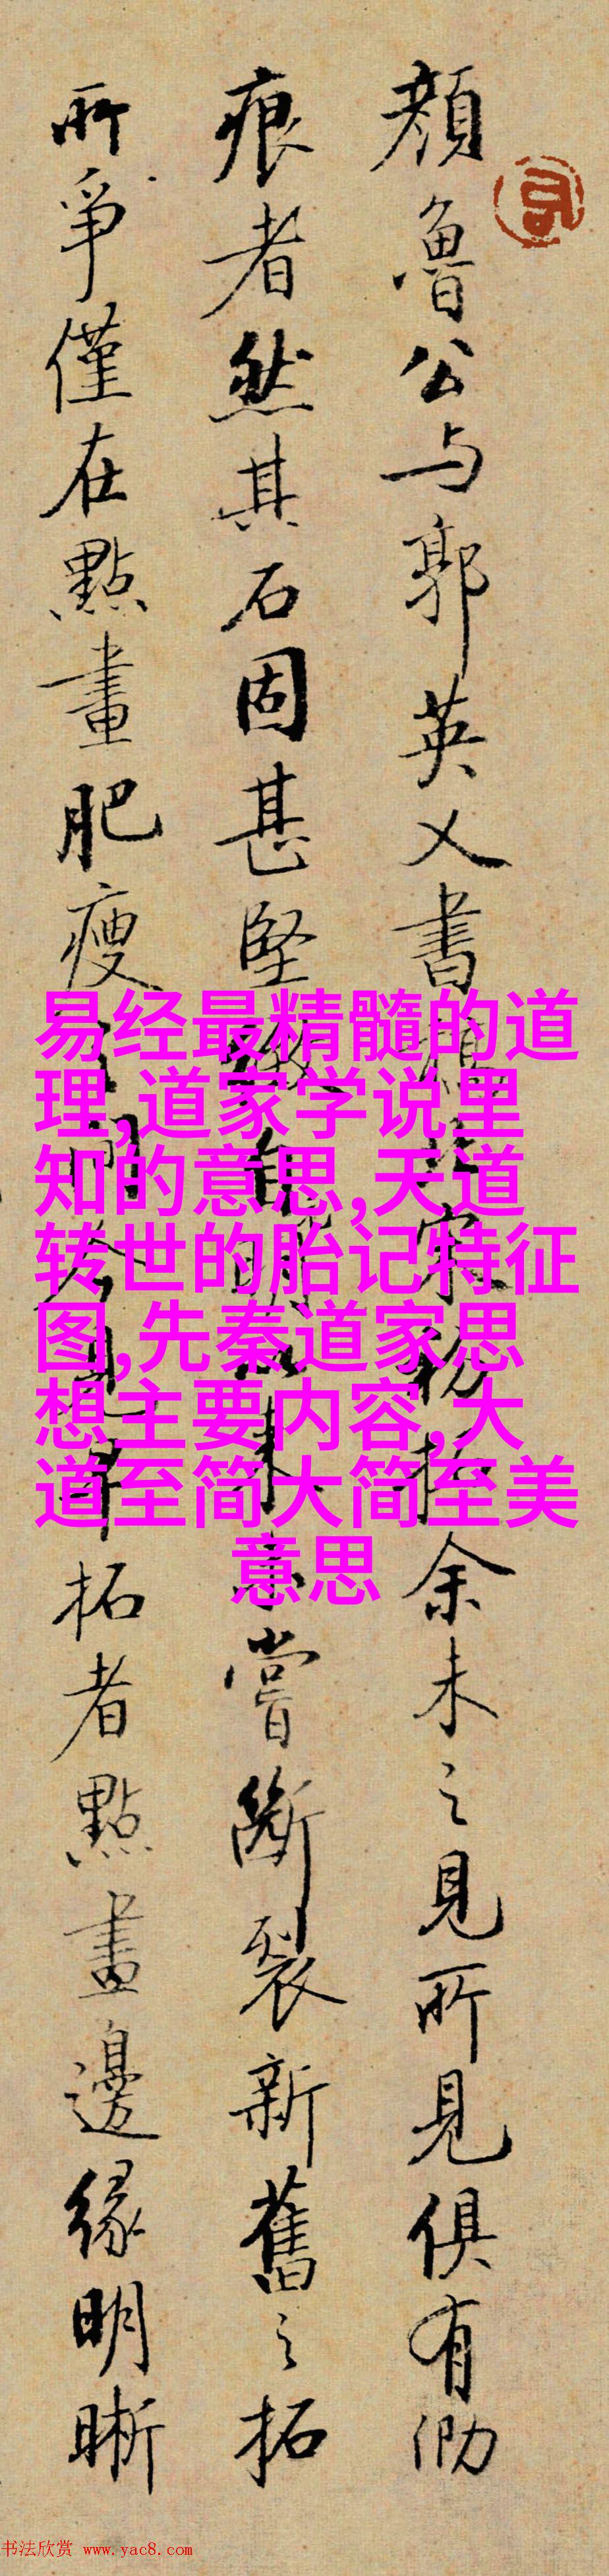 顔魯公与郭英乂書 宋 拓余未之見所見俱有泐
痕者然其石固甚堅 自明以来未嘗斷裂新舊之拓
所爭僅在點畫肥瘦之間 早拓者點畫邊緣明晰
易经最精髓的道
理,道家学说里
知的意思,天道
转世的胎记特征
图,先秦道家思
想主要内容,大
道至简大简至美
意思
书法欣赏 www.yac8.com